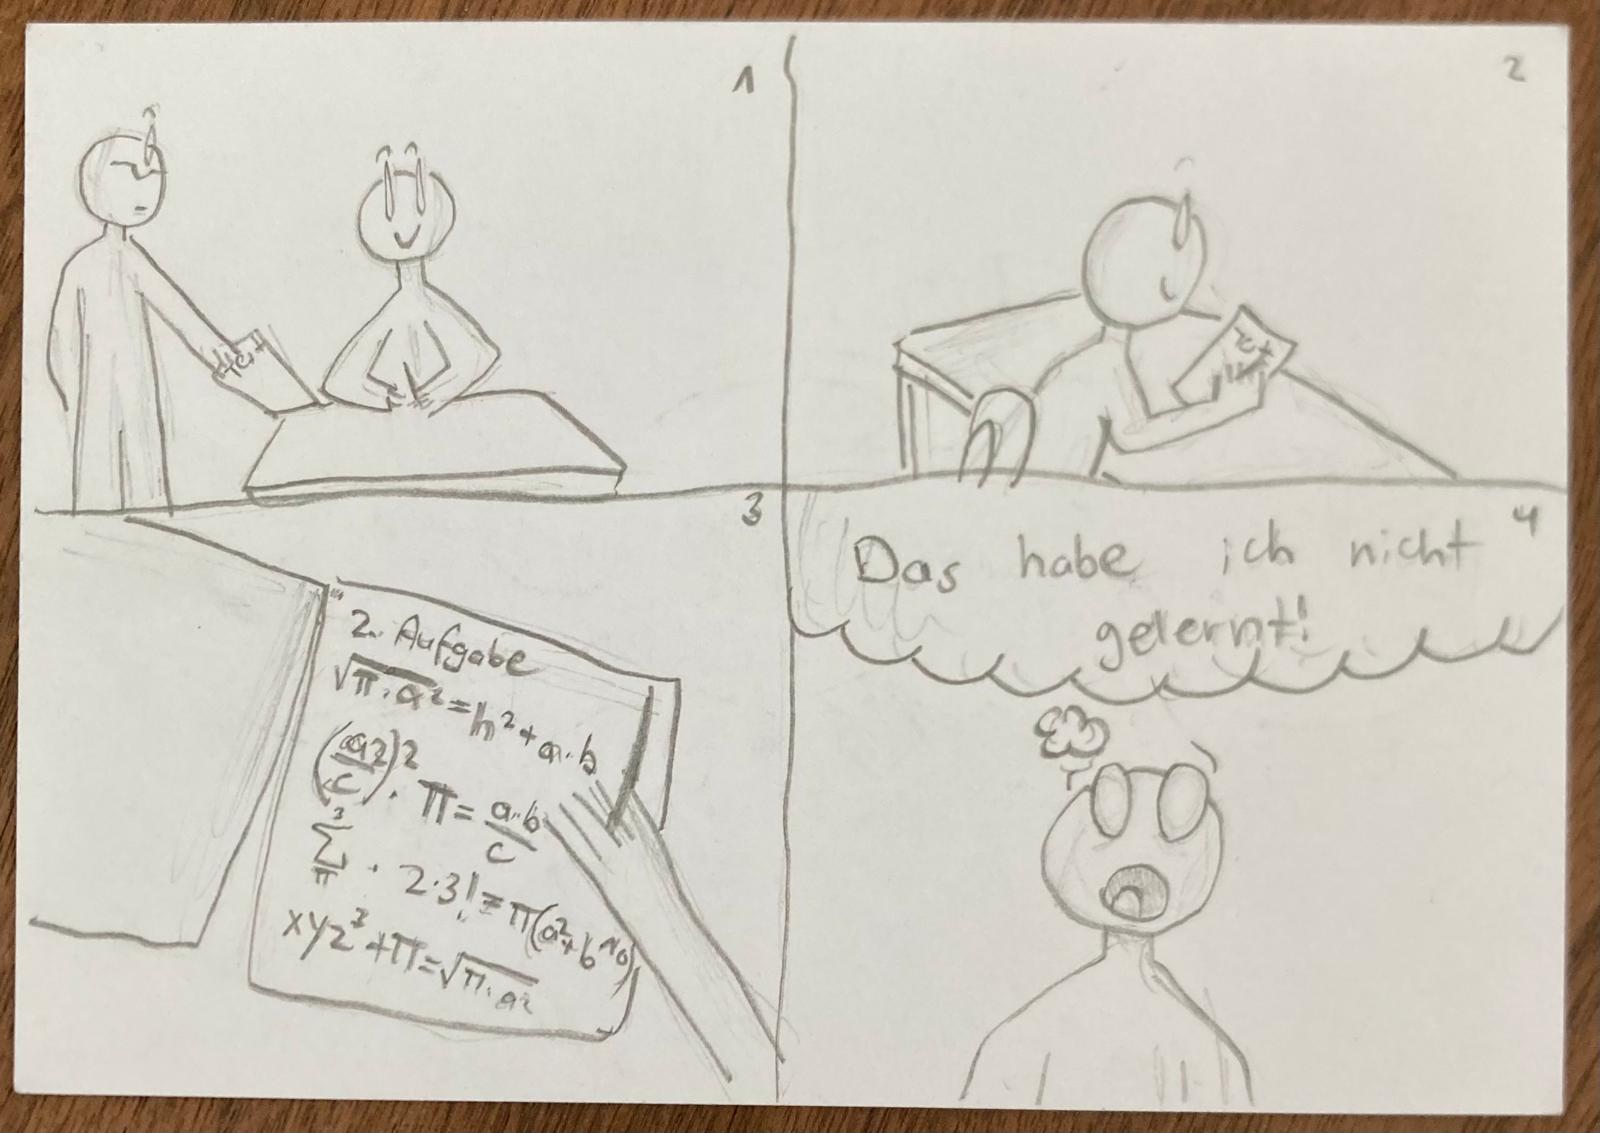 1
Test
2
Test
3
2. Aufgabe
√π·a² = h² + a·b
(a2/c)² · π = a·b/c
∑³π · 2·3! = π(a²+b¹⁰)
xyz³ + π = √π·a²
4
Das habe ich nicht
gelernt!